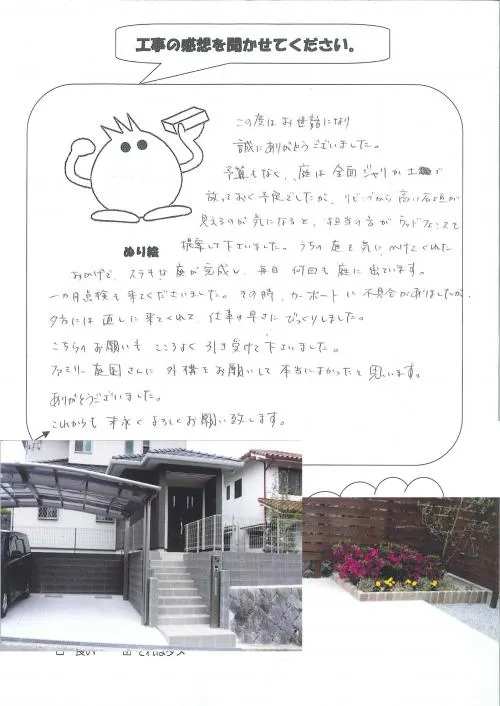 工事の感想を聞かせてください。
この度はお世話になり
誠にありがとうございました。
予算もなく、庭は全面ジャリか土で
放っておく予定でしたが、リビングから高い石垣が
見えるのが気になると、担当の方がウッドフェンスを
ぬり絵
提案して下さいました。うちの庭を気にかけてくれた
おかげで、ステキな庭が完成し、毎日何回も庭に出ています。
一カ月点検も来てくださいました。その時、カーポートに不具合がありましたが、
夕方には直しに来てくれて、仕事の早さにびっくりしました。
こちらのお願いもこころよく引き受けて下さいました。
ファミリー庭園さんに外構をお願いして本当によかったと思います。
ありがとうございました。
これからも末永くよろしくお願い致します。